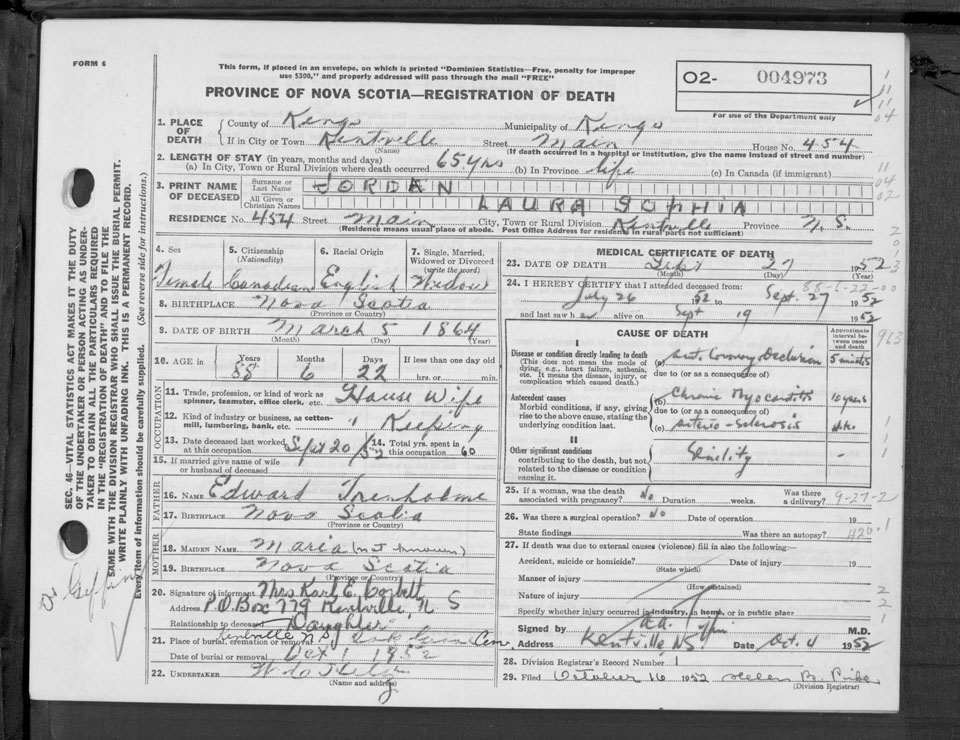 FORM 6
This form, if placed in an envelope, on which is printed "Dominion Statistics—Free, penalty for improper
use $300," and properly addressed will pass through the mail "FREE"
PROVINCE OF NOVA SCOTIA—REGISTRATION OF DEATH
O2- 004973
For use of the Department only
1. PLACE OF DEATH
County of Kings Municipality of Kings
If in City or Town Kentville Street Main House No. 454
(Name) (If death occurred in a hospital or institution, give the name instead of street and number)
2. LENGTH OF STAY (in years, months and days)
(a) In City, Town or Rural Division where death occurred 65 yrs (b) In Province life (c) In Canada (if immigrant)
3. PRINT NAME OF DECEASED
Surname or Last Name JORDAN
All Given or Christian Names LAURA SOPHIA
RESIDENCE No. 454 Street Main City, Town or Rural Division Kentville Province N. S.
(Residence means usual place of abode. Post Office Address for residents in rural parts not sufficient)
4. Sex 5. Citizenship (Nationality) 6. Racial Origin 7. Single, Married, Widowed or Divorced (write the word)
Female Canadian English Widow
8. BIRTHPLACE Nova Scotia
(Province or Country)
9. DATE OF BIRTH March 5 1864
(Month) (Day) (Year)
10. AGE in Years Months Days If less than one day old
88 6 22 hrs. or min.
OCCUPATION
11. Trade, profession, or kind of work as spinner, teamster, office clerk, etc. House Wife
12. Kind of industry or business, as cotton-mill, lumbering, bank, etc. " Keeping
13. Date deceased last worked at this occupation Sept 20/52 14. Total yrs. spent in this occupation 60
15. If married give name of wife or husband of deceased
FATHER
16. NAME Edward Trenholme
17. BIRTHPLACE Nova Scotia
(Province or Country)
MOTHER
18. MAIDEN NAME Maria (not known)
19. BIRTHPLACE Nova Scotia
(Province or Country)
20. Signature of informant Mrs Karl E.
Address P.O. Box 779 Kentville, N. S
Relationship to deceased Daughter
21. Place of burial, cremation or removal Kentville N.S. Oak Grove Cem.
Date of burial or removal Oct 1 1952
22. UNDERTAKER
(Name and address)
MEDICAL CERTIFICATE OF DEATH
23. DATE OF DEATH Sept 27 1952
(Month) (Day) (Year)
24. I HEREBY CERTIFY that I attended deceased from:
88-6-22-00
July 26 1952 to Sept. 27 1952
and last saw her alive on Sept 19 1952
CAUSE OF DEATH
Approximate interval between onset and death
I
Disease or condition directly leading to death
(This does not mean the mode of dying, e.g., heart failure, asthenia, etc. It means the disease, injury, or complication which caused death.)
(a) Acute Coronary Occlusion 5 minutes
due to (or as a consequence of)
Antecedent causes
Morbid conditions, if any, giving rise to the above cause, stating the underlying condition last.
(b) Chronic Myocarditis 10 years
due to (or as a consequence of)
(c) Arterio-sclerosis
II
Other significant conditions
contributing to the death, but not related to the disease or condition causing it.
Senility -
25. If a woman, was the death associated with pregnancy? No Duration weeks. Was there a delivery?
26. Was there a surgical operation? No Date of operation 19
State findings Was there an autopsy?
27. If death was due to external causes (violence) fill in also the following:—
Accident, suicide or homicide? Date of injury 19
(State which)
Manner of injury
(How sustained)
Nature of injury
Specify whether injury occurred in industry, in home, or in public place
Signed by M.D.
Address Kentville, NS. Date Oct. 4 1952
28. Division Registrar's Record Number 1
29. Filed October 16 1952 Helen B.
(Division Registrar)
SEC. 46—VITAL STATISTICS ACT MAKES IT THE DUTY
OF THE UNDERTAKER OR PERSON ACTING AS UNDER-
TAKER TO OBTAIN ALL THE PARTICULARS REQUIRED
IN THE "REGISTRATION OF DEATH" AND TO FILE THE
SAME WITH THE DIVISION REGISTRAR WHO SHALL ISSUE THE BURIAL PERMIT.
WRITE PLAINLY WITH UNFADING INK. THIS IS A PERMANENT RECORD.
Every item of information should be carefully supplied. (See reverse side for instructions.)